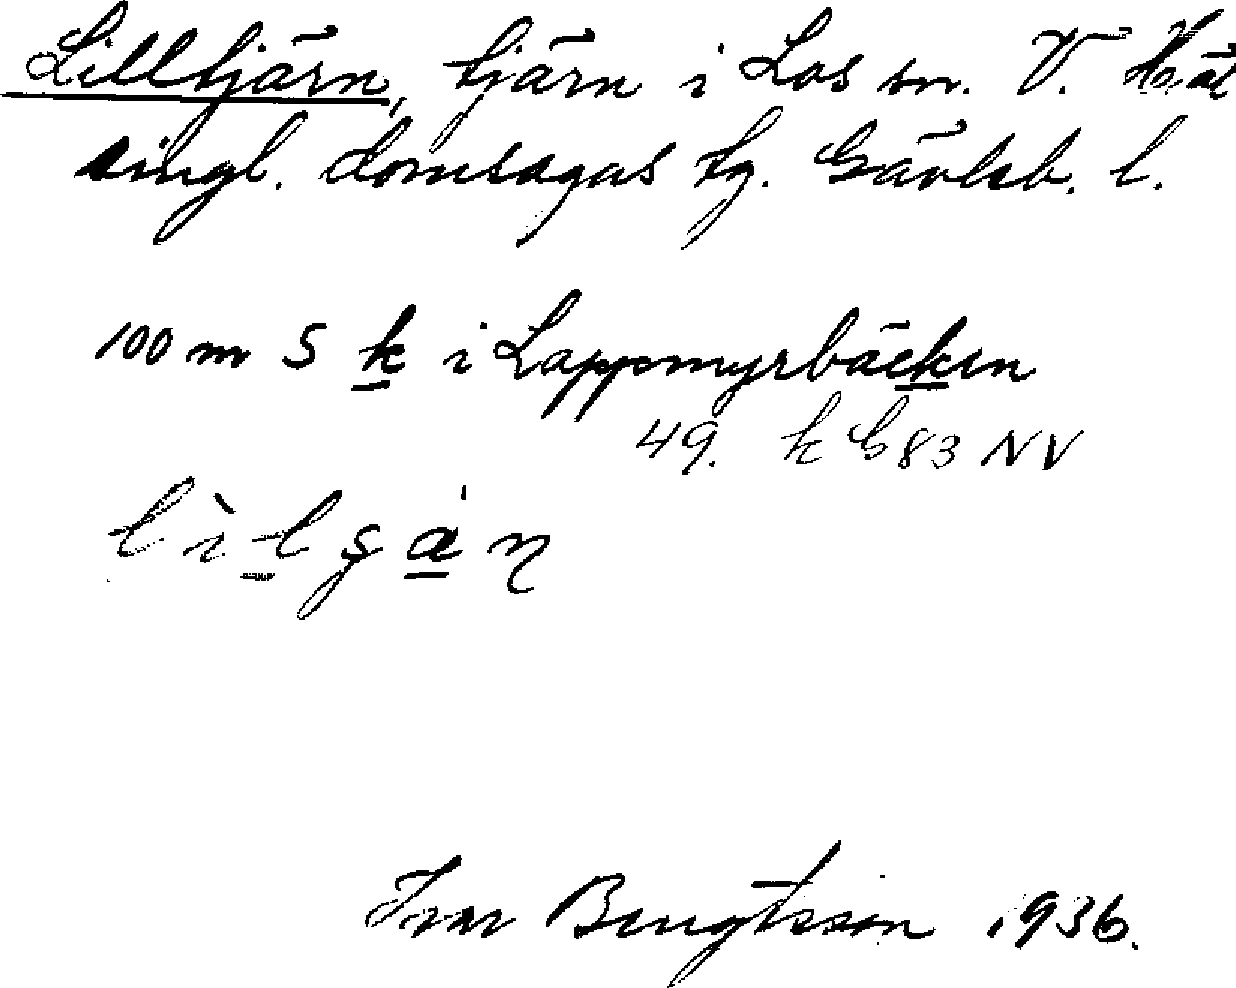 Lilltjärn, tjärn i Los sn. V. Häl
singl. domsagas tg. Gävleb. l.
100 m S k i Lappmyrbäcken
49. k b 83 NV
Ivar Bengtsson 1936.